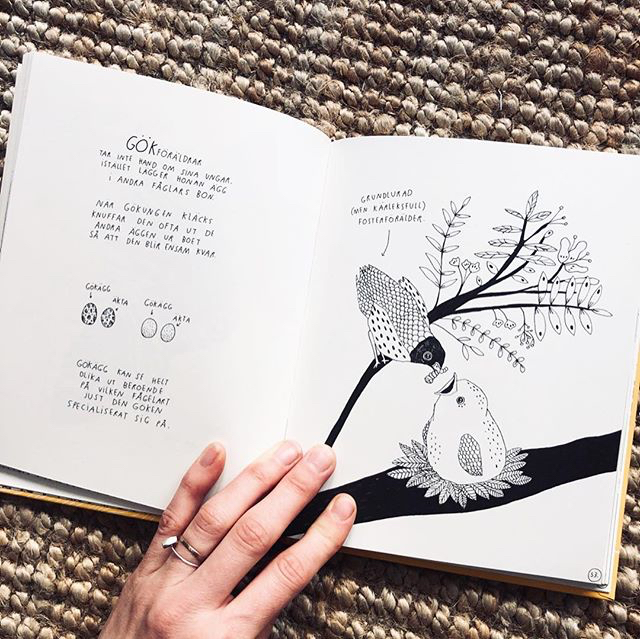 GÖKFÖRÄLDRAR
TAR INTE HAND OM SINA UNGAR.
ISTÄLLET LÄGGER HONAN ÄGG
I ANDRA FÅGLARS BON.
NÄR GÖKUNGEN KLÄCKS
KNUFFAR DEN OFTA UT DE
ANDRA ÄGGEN UR BOET
SÅ ATT DEN BLIR ENSAM KVAR.
GÖKÄGG
ÄKTA
GÖKÄGG
ÄKTA
GÖKÄGG KAN SE HELT
OLIKA UT BEROENDE
PÅ VILKEN FÅGELART
JUST DEN GÖKEN
SPECIALISERAT SIG PÅ.
GRUNDLURAD
(MEN KÄRLEKSFULL)
FOSTERFÖRÄLDER.
53.